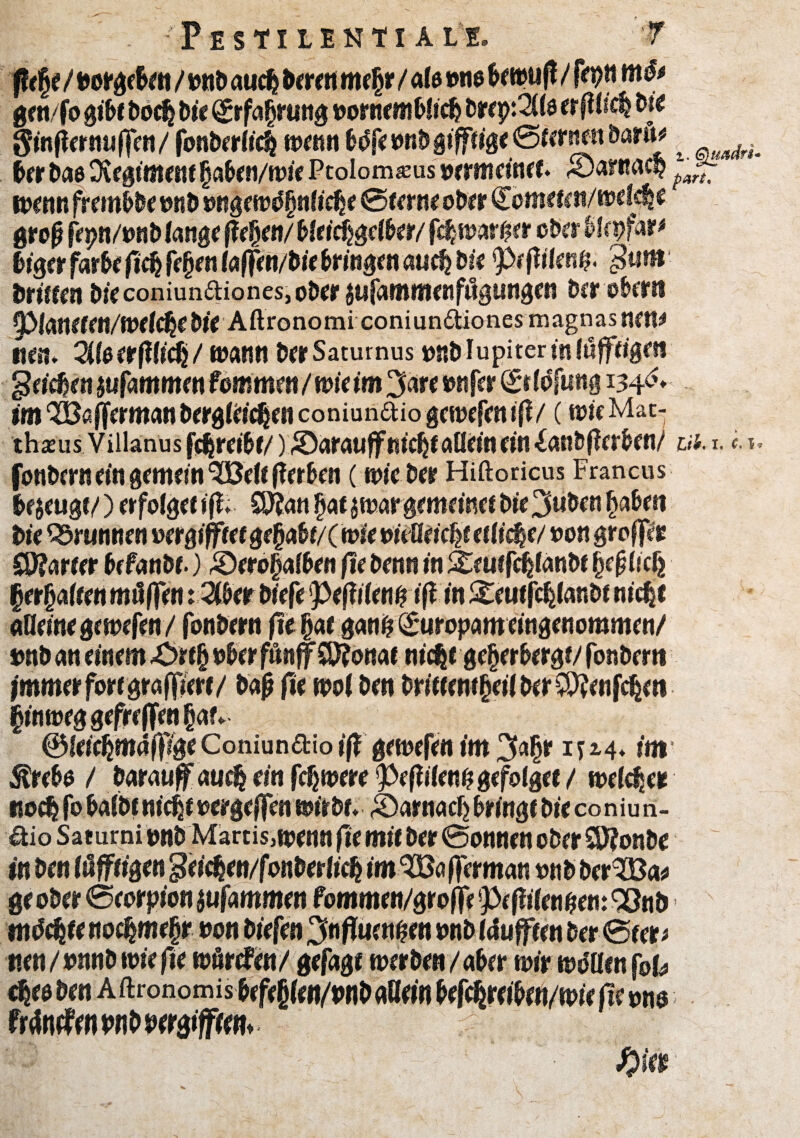 PESTILENTIALE. 7
stehe / vorgeben / vnd auch deren mehr / als vns bewust / seyn mö⸗
gen/so gibt doch die Erfahrung vornemblich drey: Als erstlich die
Finsternussen / sonderlich wenn böse vnd gifftige Sternen darü⸗
ber das Regiment haben/wie Ptolomæus vermeinet. Darnach
2. Quadri-
part.
wenn frembde vnd vngewöhnliche Sterne oder Cometen/welche
groß seyn/vnd lange stehen/bleichgelber/ schwartzer oder bleyfar⸗
biger farbe sich sehen lassen/die bringen auch die Pestilentz. Zum
dritten die coniunctiones, oder zusammenfügungen der obern
Planeten/welche die Astronomi coniunctiones magnas nen⸗
nen. Als erstlich / wann der Saturnus vnd Iupiter in lüfftigen
Zeichen zusammen kommen / wie im Jare vnser Erlösung 1346.
im Wasserman dergleichen coniunctio gewesen ist / ( wie Mat-
thæus Villanus schreibt/ ) Darauff nicht allein ein Land sterben/
Lib. 1. c. 1.
sondern ein gemein Welt sterben ( wie der Historicus Francus
bezeugt/ ) erfolget ist. Man hat zwar gemeinet die Juden haben
die Brunnen vergifftet gehabt/( wie vielleicht etliche/ von grosser
Marter bekandt. ) Derohalben sie denn in Teutschlandt heßlich
herhalten müssen: Aber diese Pestilentz ist in Teutschlandt nicht
alleine gewesen / sondern sie hat gantz Europam eingenommen/
vnd an einem Orth vber fünff Monat nicht geherbergt/ sondern
jmmer fort grassiert / daß sie wol den drittentheil der Menschen
hinweg gefressen hat.
Gleichmässige Coniunctio ist gewesen im Jahr 1524. im
Krebs / darauff auch ein schwere Pestilentz gefolget / welcher
noch so baldt nicht vergessen wirdt. Darnach bringt die coniun-
ctio Saturni vnd Martis, wenn sie mit der Sonnen oder Monde
in den lüfftigen Zeichen/sonderlich im Wasserman vnd der Wa⸗
ge oder Scorpion zusammen kommen/grosse Pestilentzen: Vnd
möchte noch mehr von diesen Influentzen vnd läufften der Ster⸗
nen / vnnd wie sie würcken/ gesagt werden / aber wir wöllen sol⸗
ches den Astronomis befehlen/vnd allein beschreiben/wie sie vns
kräncken vnd vergifften.
Hier